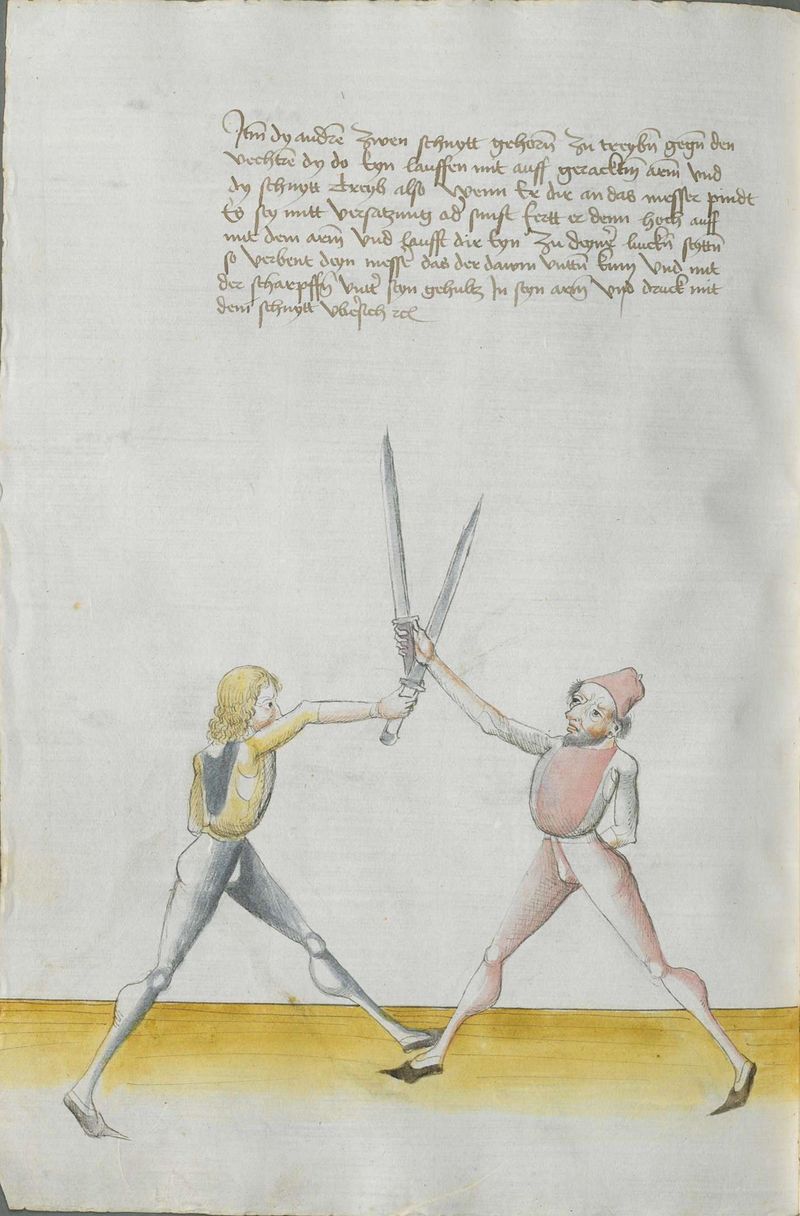 Itm dy andrē zwen schnytt gehorn̄ zu treybn̄ gegn̄ den
vechtrē dy do eyn lauffen mit auff gerackt̄n arm̄ vnd
dy schnytt treyb also wenn Er dir an das messer pindt
Es sey mitt versatzung ad sinst fertt er denn hoch auff
mit dem arm̄ vnd laufft dir eyn zu deynr̄ linckn̄ seyttn̄
so verbent deyn messer̄ das der dawm vnttn̄ kum vnd mit
der scharpffn̄ vntt̄ seyn gehultz In seyn arm̄ vnd druck mit
dem schnytt vbe͛sich rcl